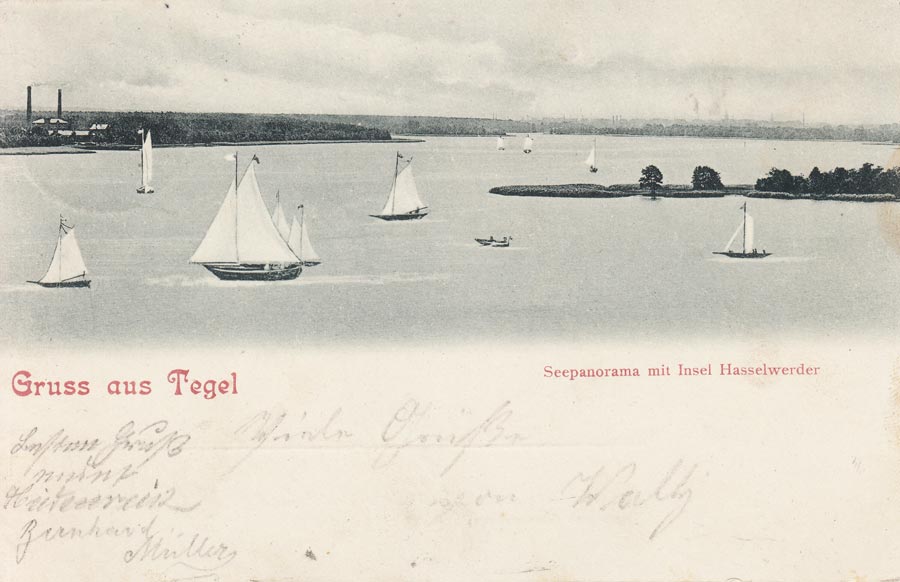 Gruss aus Tegel
Seepanorama mit Insel Hasselwerder
Viele Grüße
von Wally
Besten Gruß
Bernhard
Müller